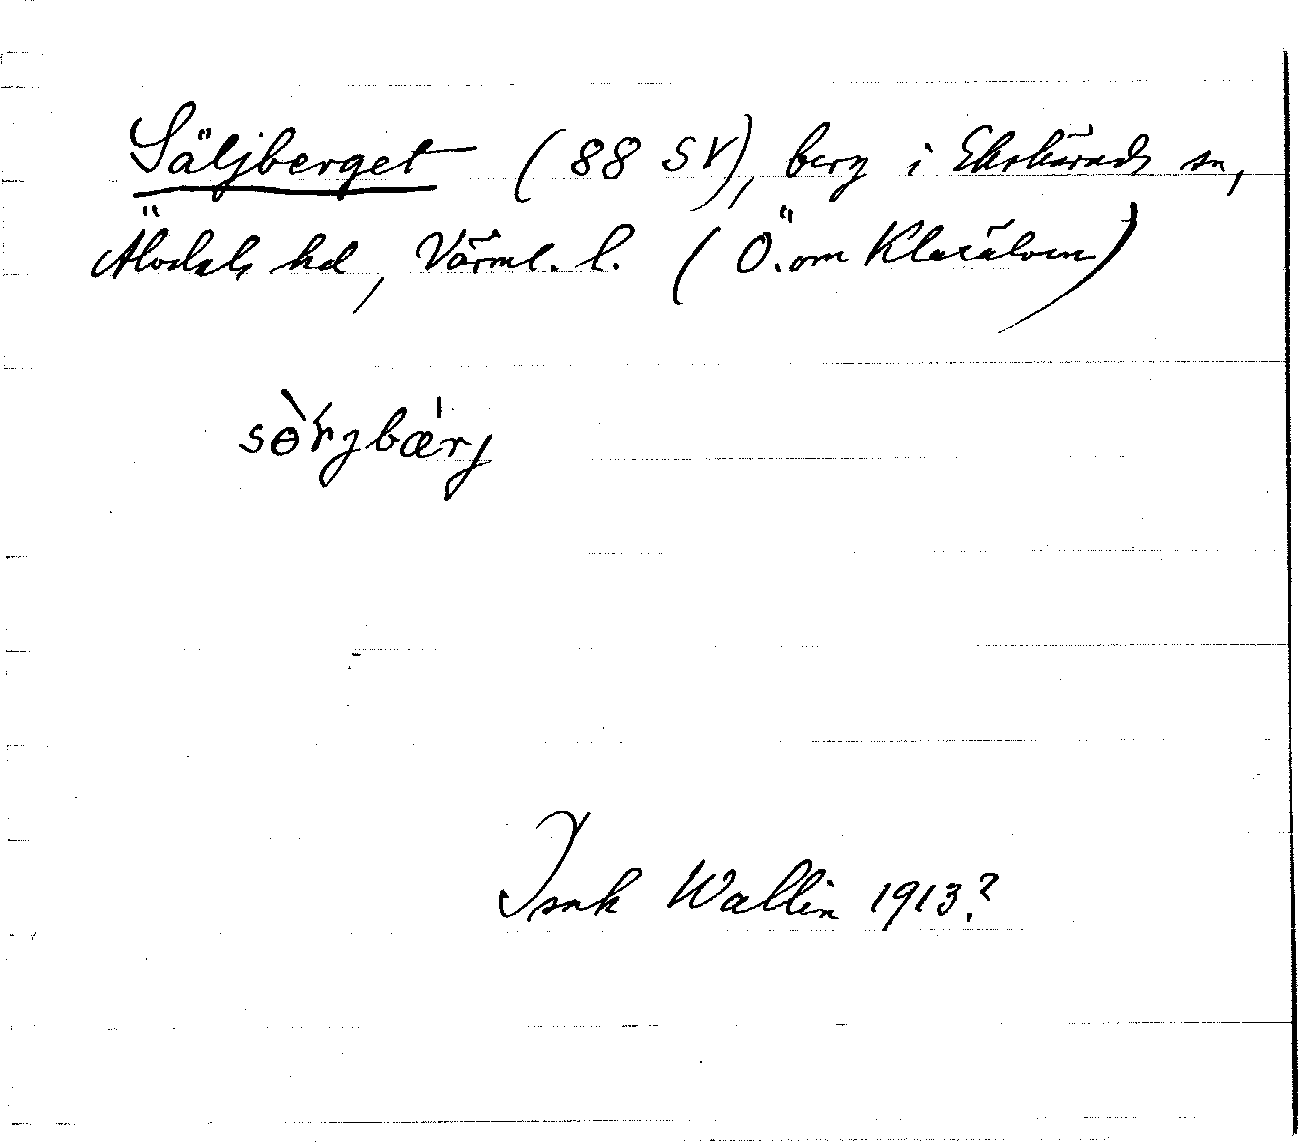 Säljberget (88 SV), berg i Ekshärads sn,
Älvdals hd, Värml. l. (Ö. om Klarälven)
Isak Wallin 1913?